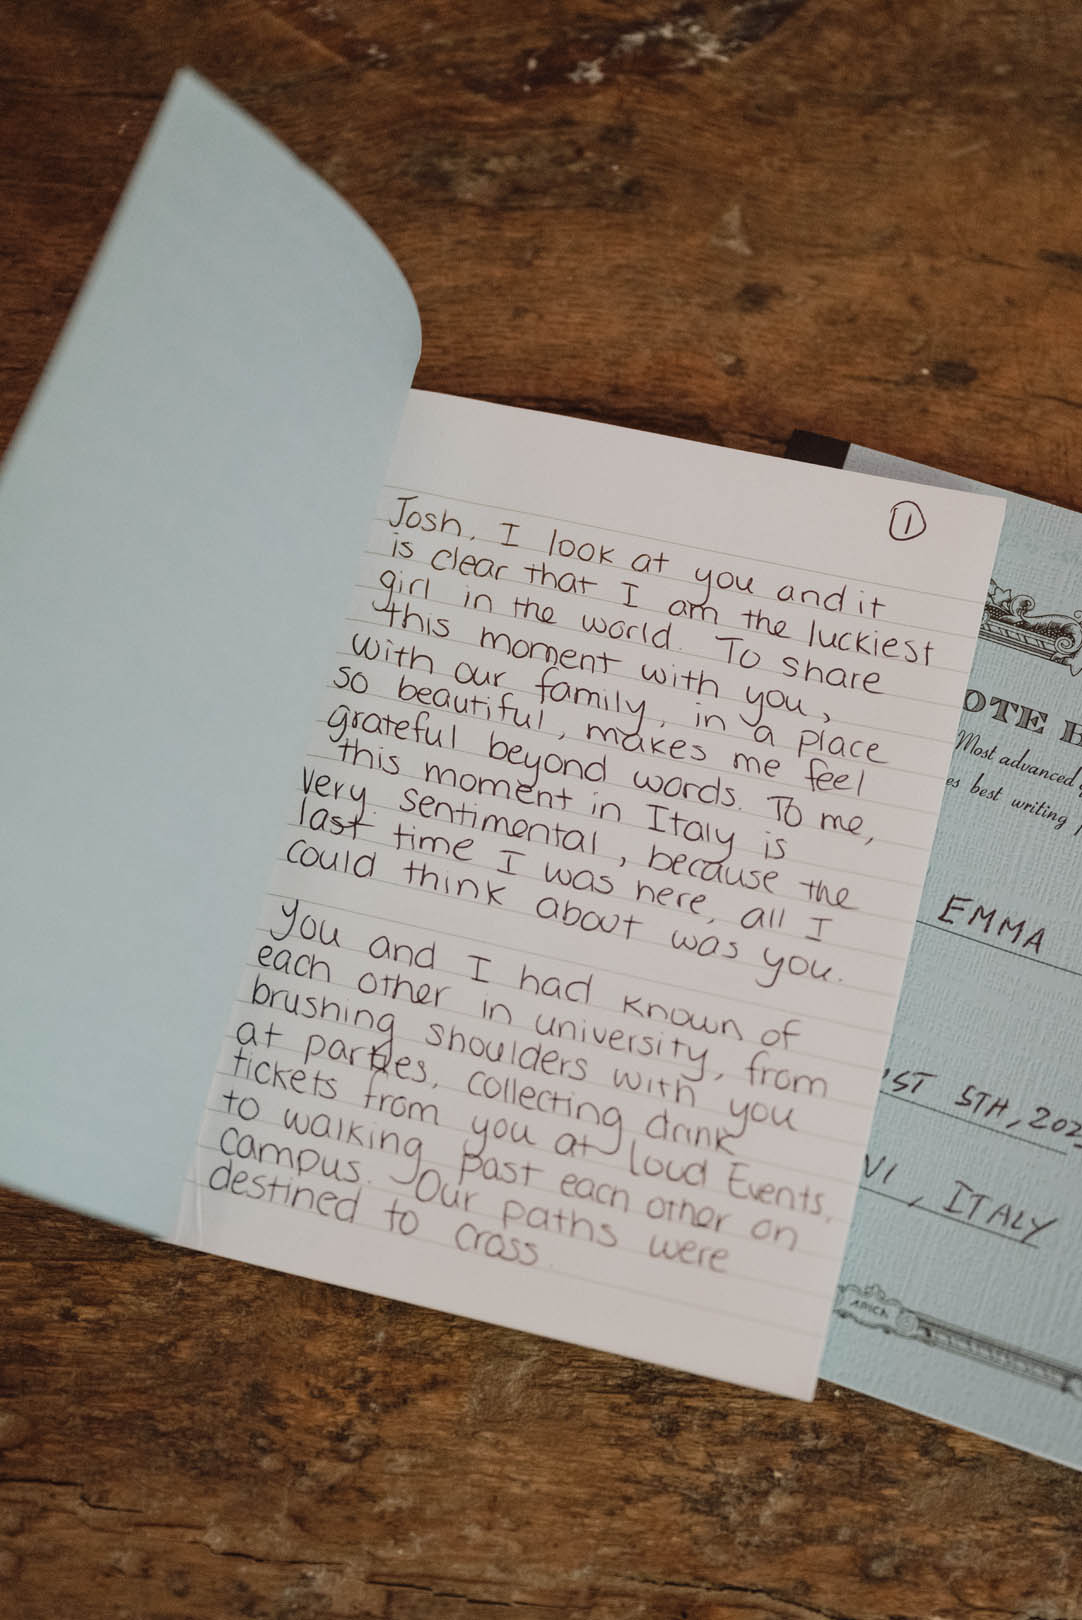 1
Josh, I look at you and it
is clear that I am the luckiest
girl in the world. To share
this moment with you,
with our family, in a place
so beautiful, makes me feel
grateful beyond words. To me,
this moment in Italy is
very sentimental, because the
last time I was here, all I
could think about was you.
You and I had known of
each other in university, from
brushing shoulders with you
at parties, collecting drink
tickets from you at loud Events,
to walking past each other on
campus. Our paths were
destined to cross
OTE
Most advanced
best writing
EMMA
ST 5TH, 202
VI, ITALY
APICA